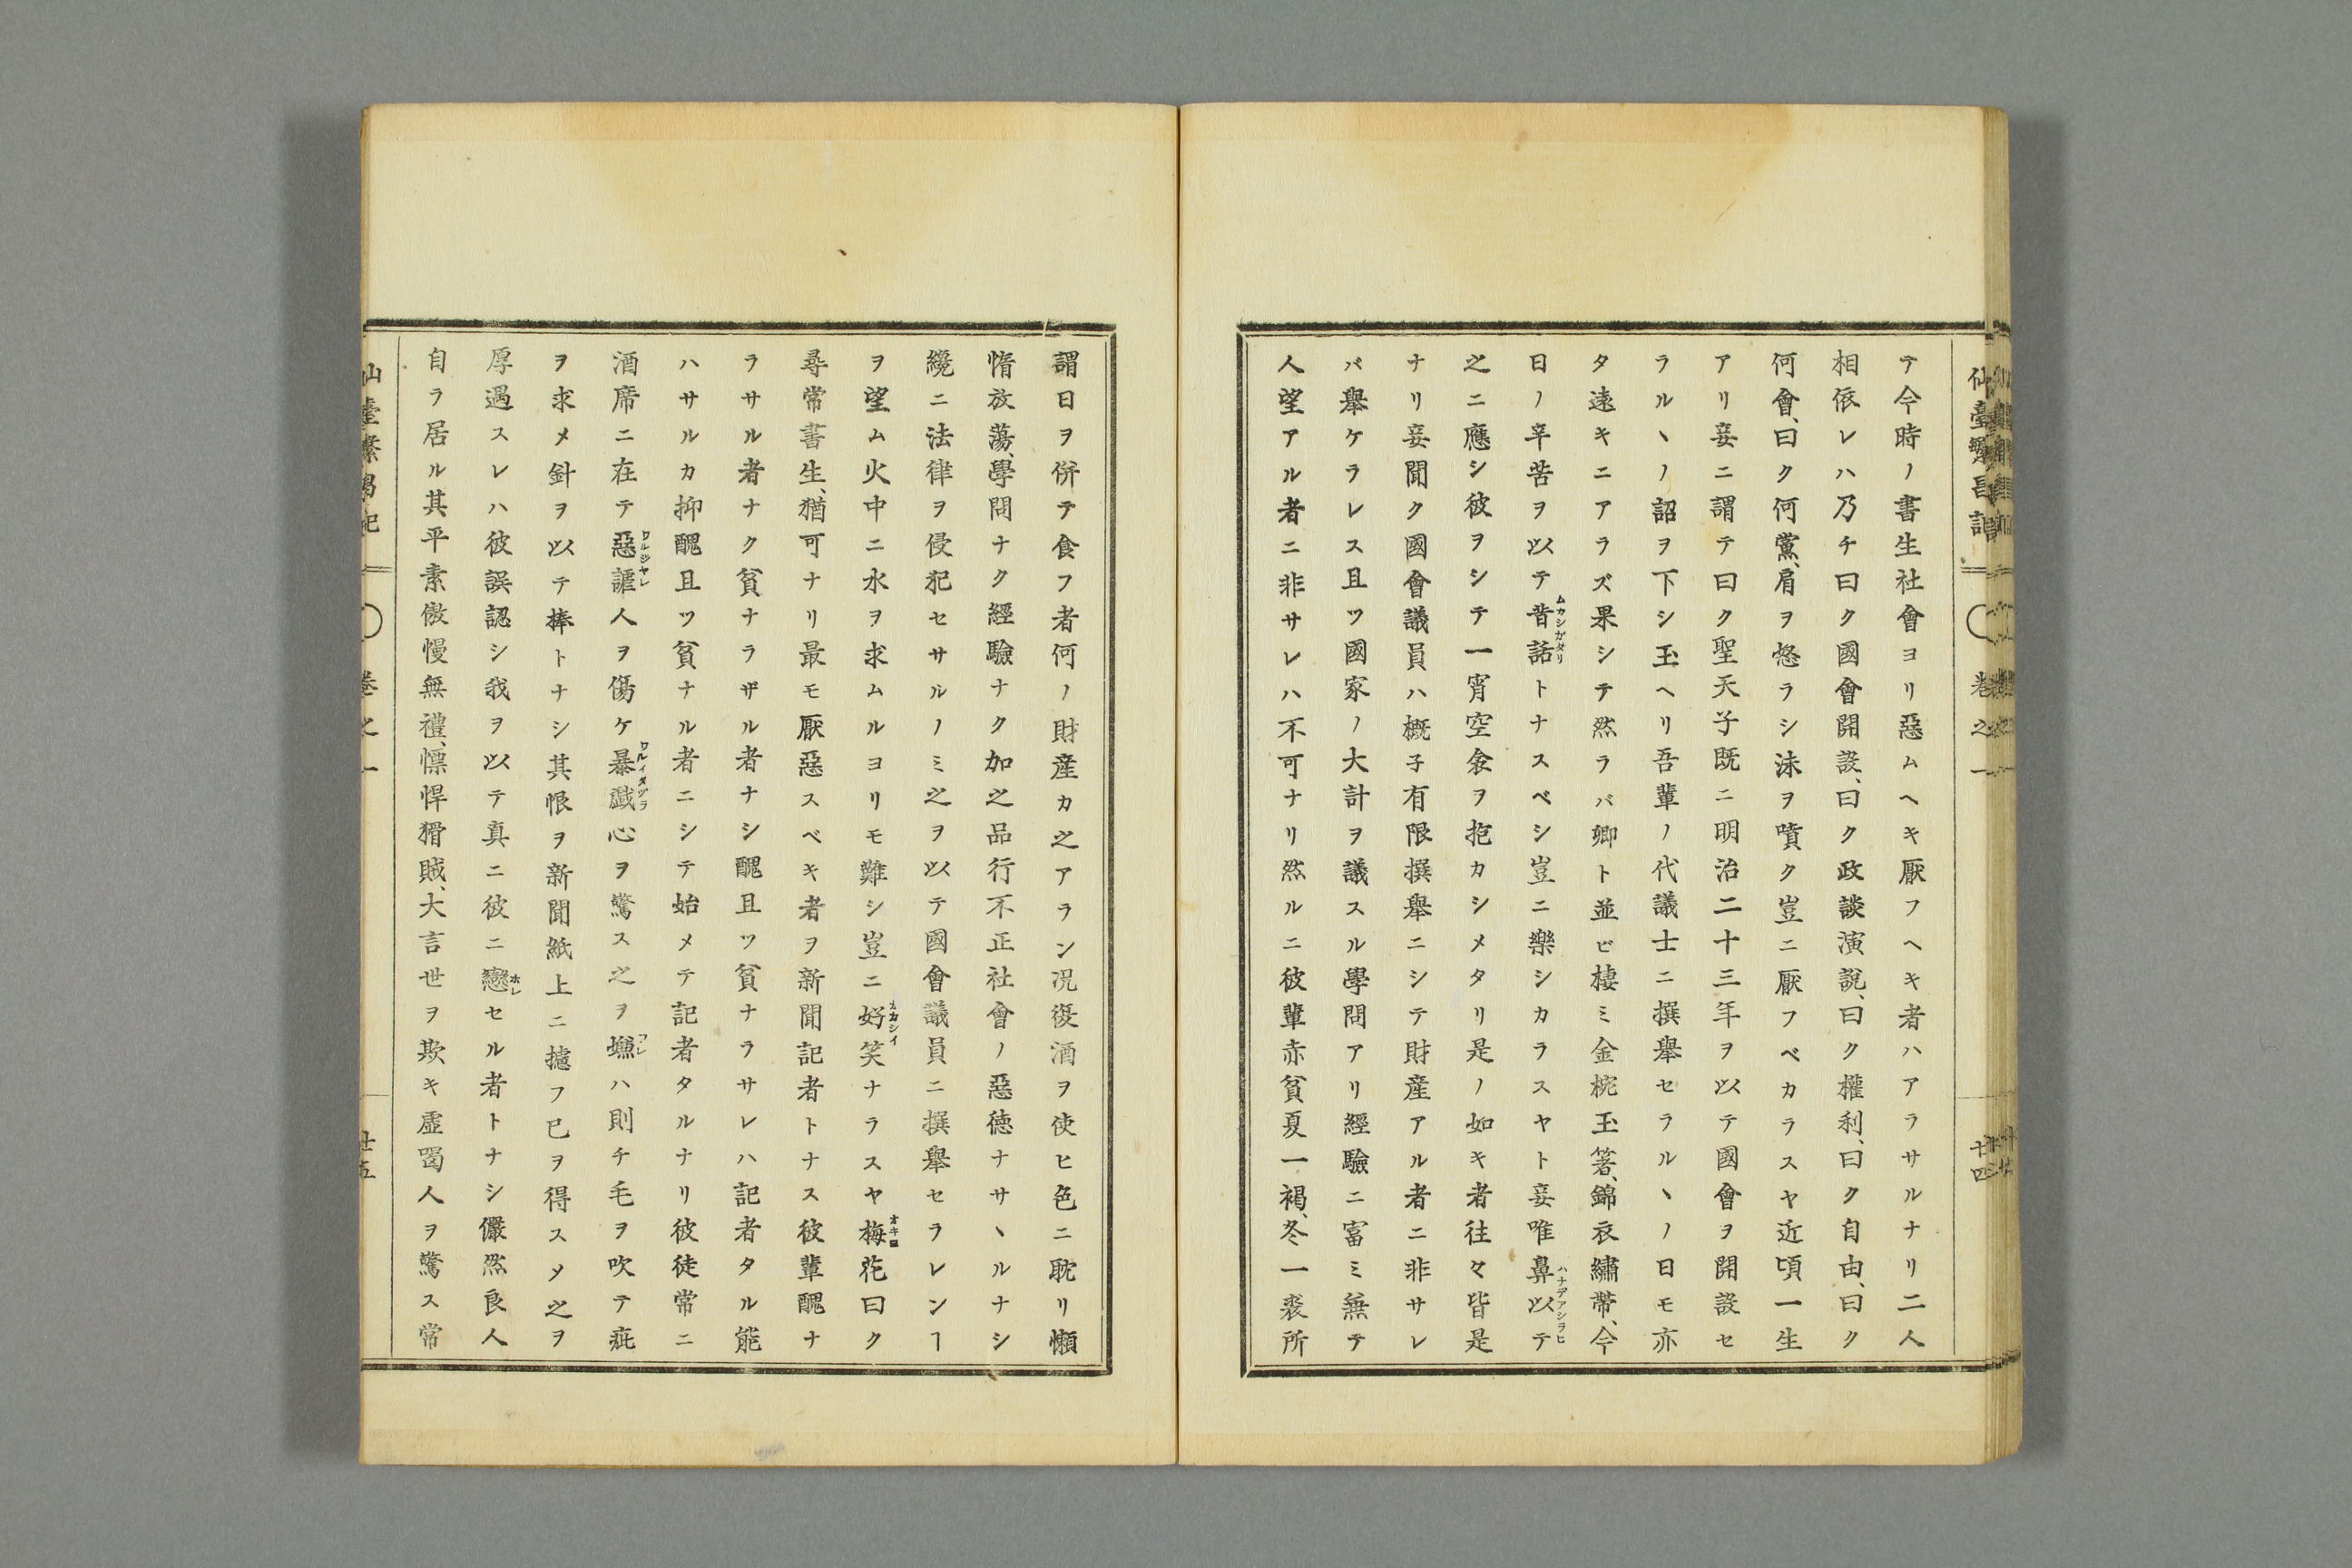 仙臺繁昌記
卷之一
廿四
テ今時ノ書生社會ヨリ惡ムヘキ厭フヘキ者ハアラサルナリ二人
相依レハ乃チ曰ク國會開設、曰ク政談演說、曰ク權利、曰ク自由、曰ク
何會、曰ク何黨、肩ヲ怒ラシ沫ヲ噴ク豈ニ厭フベカラスヤ近頃一生
アリ妾ニ謂テ曰ク聖天子既ニ明治二十三年ヲ以テ國會ヲ開設セ
ラルヽノ詔ヲ下シ玉ヘリ吾輩ノ代議士ニ撰舉セラルヽノ日モ亦
タ遠キニアラズ果シテ然ラバ卿ト並ビ棲ミ金椀玉箸、錦衣繡帶、今
日ノ辛苦ヲ以テ昔話ムカシガタリトナスベシ豈ニ樂シカラスヤト妾唯鼻以テハナデアシラヒ
之ニ應シ彼ヲシテ一宵空衾ヲ抱カシメタリ是ノ如キ者往々皆是
ナリ妾聞ク國會議員ハ概子有限撰舉ニシテ財産アル者ニ非サレ
バ舉ケラレス且ツ國家ノ大計ヲ議スル學問アリ經驗ニ富ミ無テ
人望アル者ニ非サレハ不可ナリ然ルニ彼輩赤貧夏一褐、冬一裘所
謂日ヲ併テ食フ者何ノ財産カ之アラン況復酒ヲ使ヒ色ニ耽リ懶
惰放蕩、學問ナク經驗ナク加之品行不正社會ノ惡德ナサヽルナシ
纔ニ法律ヲ侵犯セサルノミ之ヲ以テ國會議員ニ撰舉セラレンヿ
ヲ望ム火中ニ水ヲ求ムルヨリモ難シ豈ニ好笑オカシイナラスヤ梅花曰ク
尋常書生、猶可ナリ最モ厭惡スベキ者ヲ新聞記者トナス彼輩醜ナ
ラサル者ナク貧ナラザル者ナシ醜且ツ貧ナラサレハ記者タル能
ハサルカ抑醜且ツ貧ナル者ニシテ始メテ記者タルナリ彼徒常ニ
酒席ニ在テ惡謔ワルジヤレ人ヲ傷ケ暴戲ワルイタヅラ心ヲ驚ス之ヲ嫌ハ則チ毛ヲ吹テ疵
ヲ求メ針ヲ以テ棒トナシ其恨ヲ新聞紙上ニ攄フ已ヲ得スメ之ヲ
厚遇スレハ彼誤認シ我ヲ以テ真ニ彼ニ戀ホレセル者トナシ儼然良人
自ラ居ル其平素傲慢無禮、慓悍猾賊、大言世ヲ欺キ虛喝人ヲ驚ス常
仙臺繁昌記
卷之一
廿五